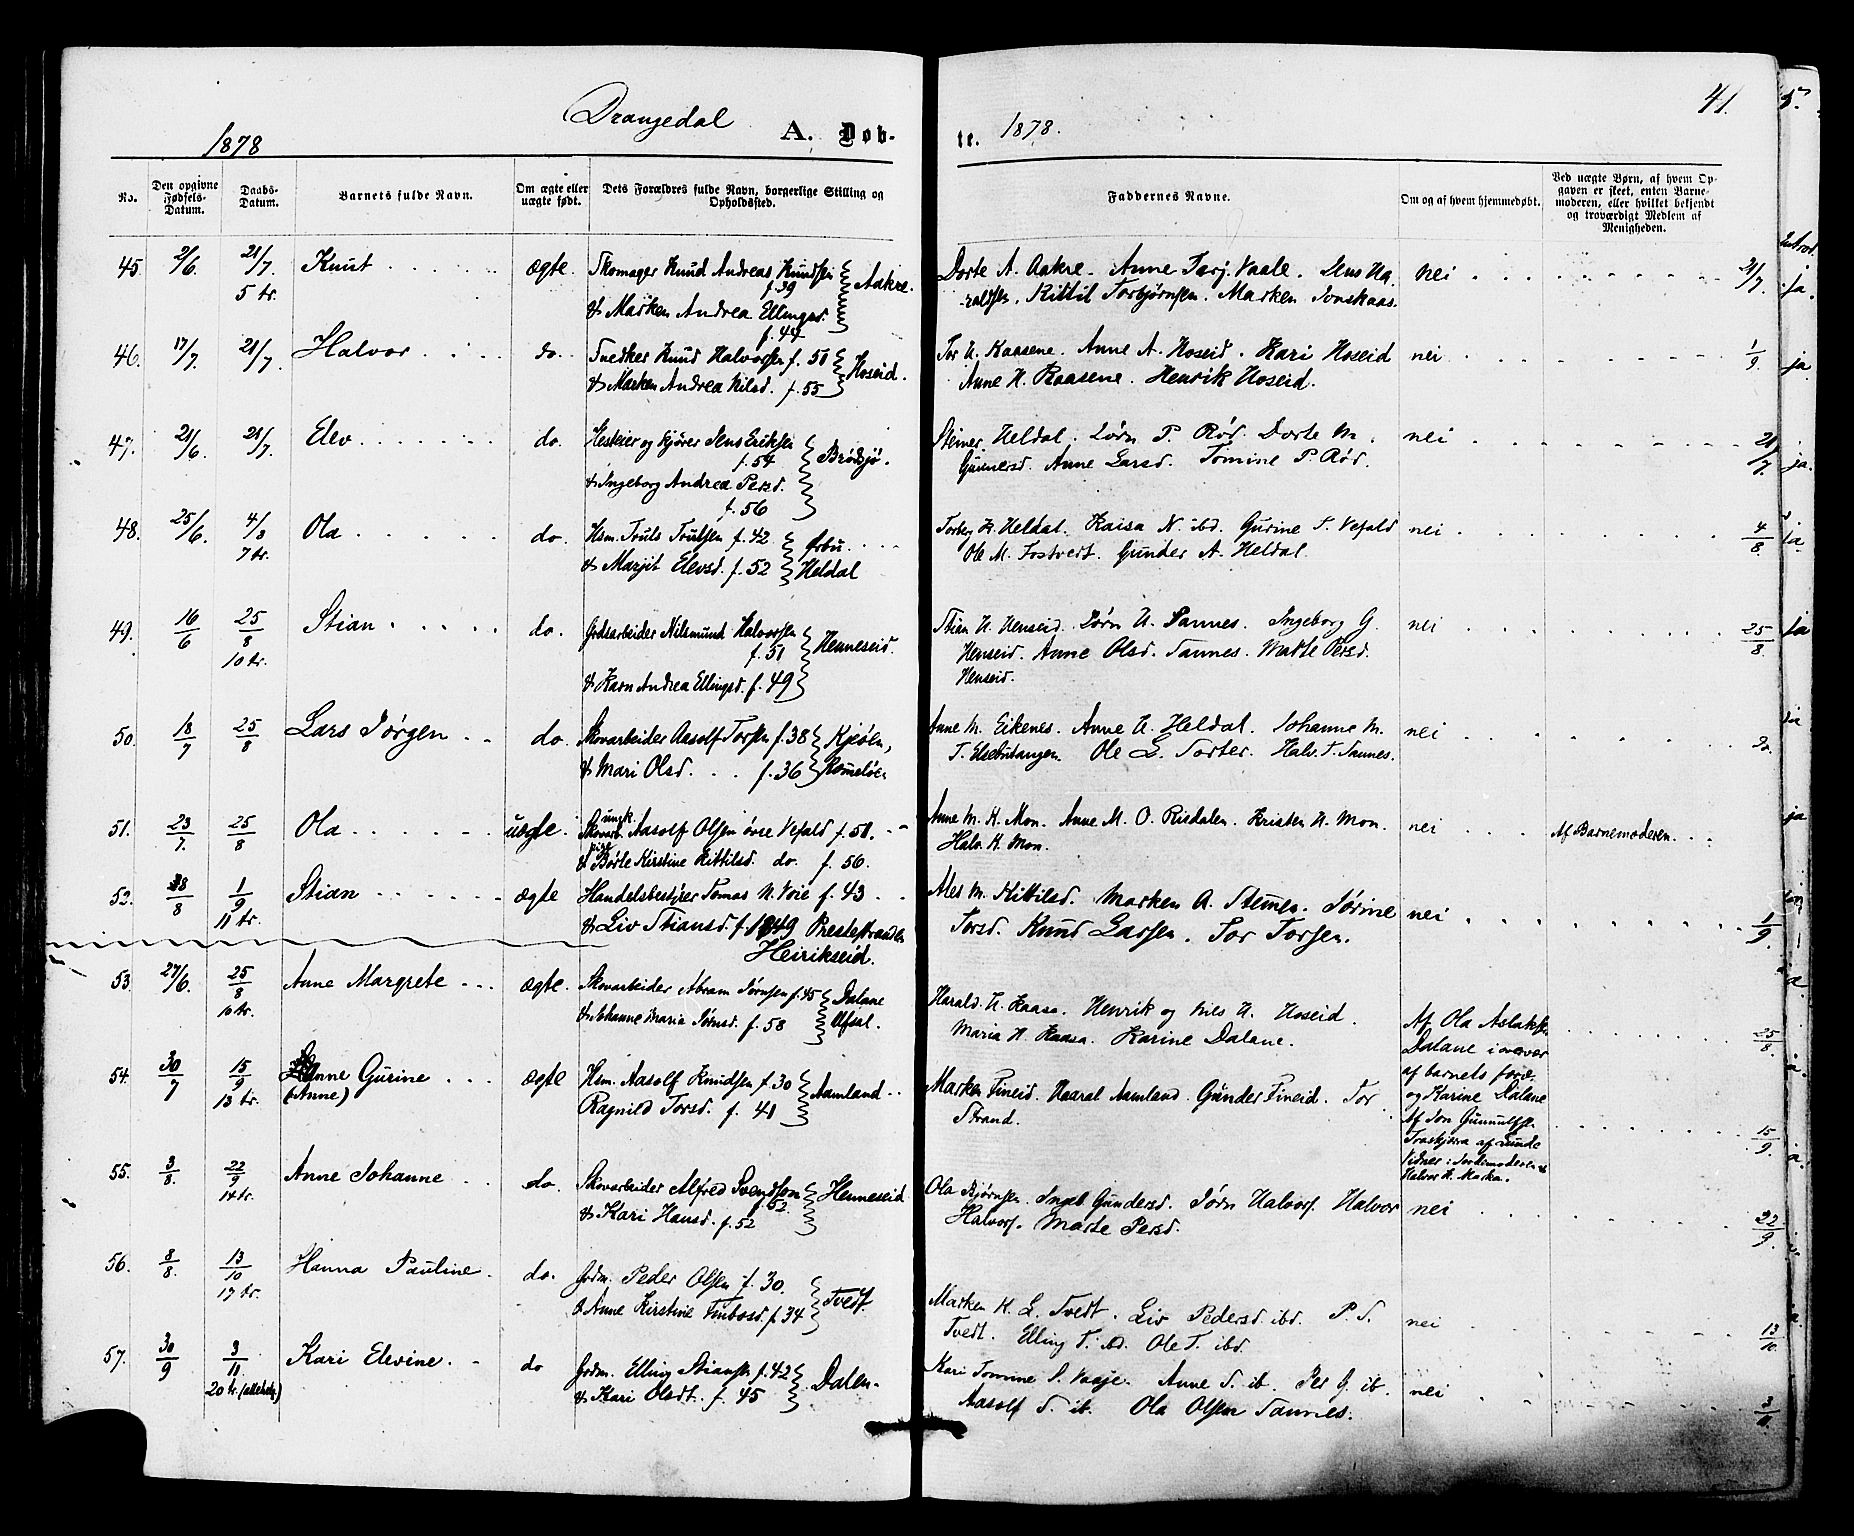 Drangedal
41.
1878
A. Døb-
te. 1878.
No.
Den opgivne Fødsels-Datum.
Daabs-Datum.
Barnets fulde Navn.
Om ægte eller uægte født.
Dets Forældres fulde Navn, borgerlige Stilling og Opholdssted.
Faddernes Navne.
Om og af hvem hjemmedøbt.
Ved uægte Børn, af hvem Opgaven er skeet, enten Barnemoderen, eller hvilket bekjendt og troværdigt Medlem af Menigheden.
45. 2/6. 21/7. Knut ægte. Skomager Knud Andreas Knudsen Aakre. Dorte A. Aakre. Anne Tarj. Vaale. Jens Ha- nei 21/7. ja.
5 tr. f. 39
& Marken Andrea Ellingsd. raldsen. Kittil Torbjørnsen. Marken Jonskaas.
f. 44
46. 17/7 21/7. Halvor do. Snedker Knud Halvorsen f. 51 Hoseid. Tor H. Kaasene. Anne A. Hoseid. Kari Hoseid nei 1/9. ja
& Marken Andrea Nilsd. f. 55 Anne H. Kaasene. Henrik Hoseid.
47. 21/6. 21/7. Elev do. Hesteier og kjører Jens Eriksen Brødsjø. Steiner Heldal. Jørn P. Rød. Dorte M. nei 21/7. ja.
f. 54
& Ingeborg Andrea Persd. Gunnersd. Anne Larsd. Tomine P. Rød.
f. 56
48. 25/6. 4/8 Ola do. Hsm. Truls Trulsen f. 42 Ørbu Torbg H. Heldal. Kaisa N. ibd. Gurine S. Vefald nei 4/8. ja.
7 tr. & Marjit Elevsd. f. 52 Heldal Ole M. Tostvert. Gunder A. Heldal.
49. 16/6 25/8 Stian do. Jordarbeider Nilsmund Halvorsen Henneseid. Stian H. Henseid. Jørn H. Sannes. Ingeborg G. nei 25/8. ja
10 tr. f. 51 Henseid. Anne Olsd. Sannes. Marte Persd.
& Karn Andrea Ellingsd. f. 49 Henseid.
50. 18/7 25/8 Lars Jørgen do. Skovarbeider Aasolf Torsen f. 38 Kjøen, Anne M. Eikenes. Anne H. Heldal. Johanne M. nei do. ja
& Mari Olsd. f. 36 T. Elsebutangen. Ole L. Torter. Halv. T. Sannes.
51. 23/7. 25/8 Ola uægte. Ungk. Aasolf Olsen övre Vefald f. 51. Anne M. K. Mon. Anne M. O. Risdalen. Kristen H. Mon. nei Af Barnemoderen. ja
& pige Børte Kirstine Kittilsd. do. f. 56. Halv. K. Mon.
52. 8/8 1/9 Stian ægte Handelsbestyrer Tomas N. Voie f. 43 Ales M. Kittilsd. Marken A. Stemen. Jørine nei 1/9.
11 tr. & Liv Stiansd. f. 1849 Prestestranden Torsd. Knud Larsen. Tor Torsen.
Heirikseid.
53. 27/6. 25/8 Anne Margrete ægte. Skovarbeider Abram Jørnsen f. 45 Dalane Harald. H. Kaasa. Henrik og Nils H. Hoseid. Af Ola Aslaksen 25/8. ja.
10 tr. & Johanne Maria Jørnsd. f. 58 Ufsal. Maria H. Kaasa. Karine Dalane. Dalane i overvær
af barnets foræ.
og Karine Dalane
54. 30/7 15/9 Anne Gurine ægte Hsm. Aasolf Knudsen f. 30 Aamland Marken Fineid. Haaral Aamland. Gunder Fineid. Tor Af Jon Gunnulfs. 15/9
13 tr. (Anne) Ragnild Torsd. f. 41 Strand. Traskjærra af Lunde
Vidner: Jordemoderen &
Halvor K. Marka.
55. 3/8. 22/9 Anne Johanne do. Skovarbeider Alfred Svendsson Henneseid Ola Bjørnsen. Ingeb. Gundersd. Jørn Halvors. Halvor nei 22/9.
14 tr. f. 52
& Kari Hansd. f. 52 Halvors. Marte Persd.
56. 8/8. 13/10 Hanna Pauline do. Jordm. Peder Olsen f. 30. Tvedt Marken K. L. Tvedt. Liv Pedersd. ibd. P. S. nei 13/10
17 tr. & Anne Kirstine f. 34 Tvedt. Elling T. ibd. Ole T. ibd.
57. 30/9 3/11 Kari Elevine. do Jordm. Elling Stiansen f. 42 Dalen Kari Tomine S. Vaaje. Anne S. ib. Per G. ib. nei 3/11.
20 tr. & Kari Olsdt. f. 45 Aasolf S. ib. Ola Olsen Sannes.